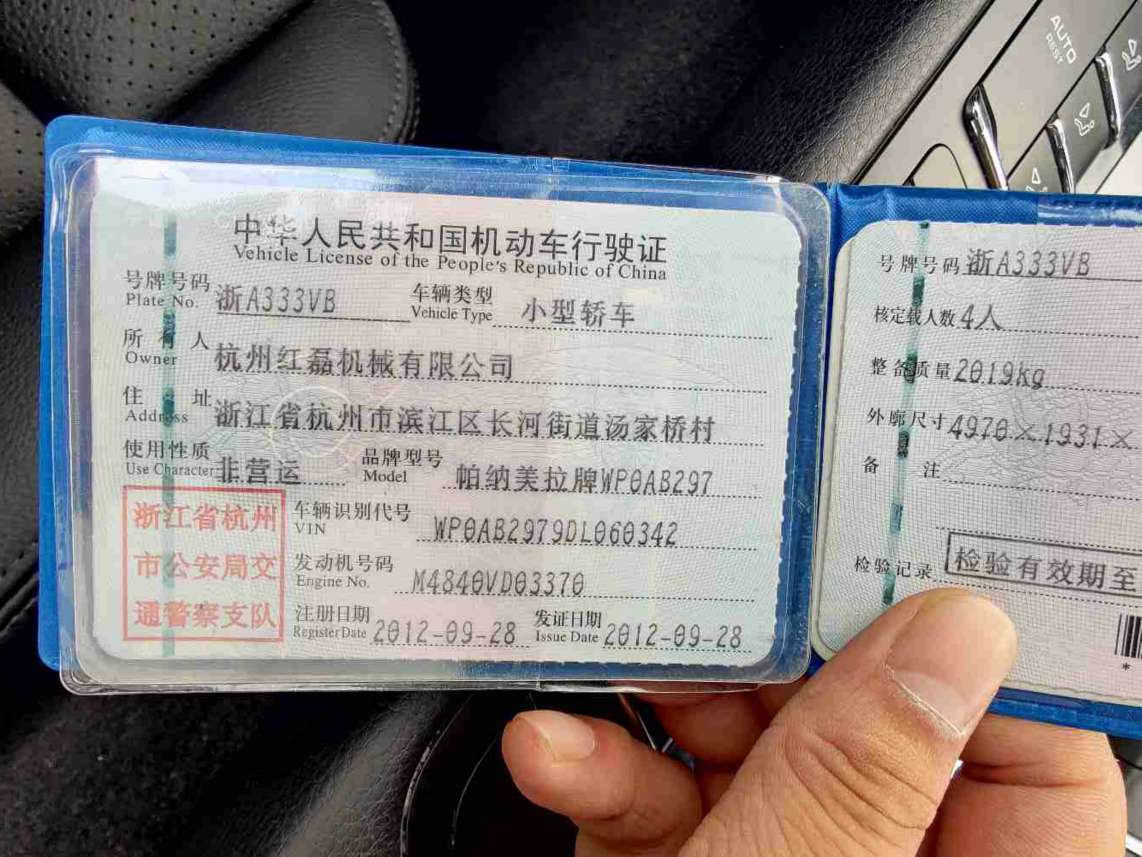 中华人民共和国机动车行驶证
Vehicle License of the People's Republic of China
号牌号码 浙A333VB 车辆类型 小型轿车
Plate No. Vehicle Type
所有人 杭州红磊机械有限公司
Owner
住址 浙江省杭州市滨江区长河街道汤家桥村
Address
使用性质 非营运 品牌型号 帕纳美拉牌WP0AB297
Use Character Model
浙江省杭州
市公安局交
通警察支队
车辆识别代号 WP0AB2979DL060342
VIN
发动机号码 M4840VD03370
Engine No.
注册日期 2012-09-28 发证日期 2012-09-28
Register Date Issue Date
号牌号码 浙A333VB
核定载人数 4人
整备质量 2019kg
外廓尺寸 4970×1931×
备注
检验记录 检验有效期至
*
AUTO
REST